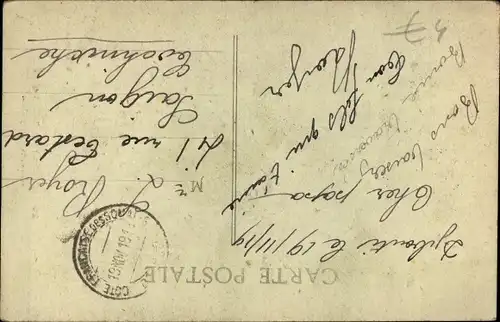 CARTE POSTALE
Djibouti le 19/11/19
Cher papa
Bons baisers
ton fils qui t'aime
Bonne
M L. Royer
41 rue Testard
Saigon
Cochinchine
CÔTE FRANÇAISE DES SOMALIS
19 NOV 19